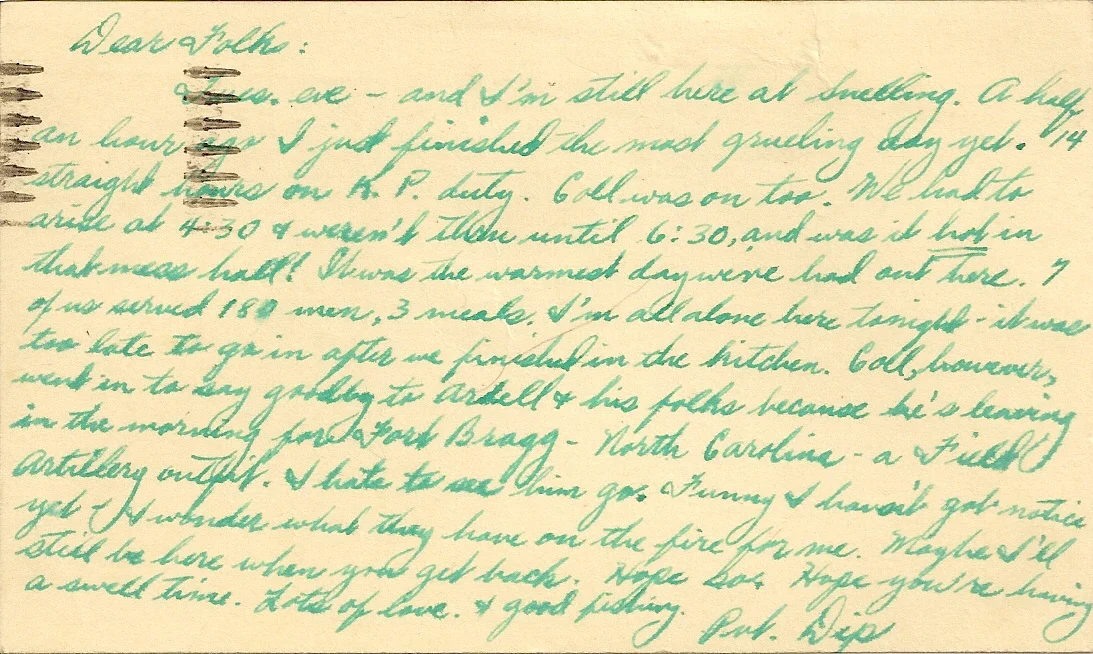 Dear Folks:
Tues. eve - and I'm still here at Snelling. A half
an hour ago I just finished the most grueling day yet. 14
straight hours on K. P. duty. Coll was on too. We had to
arise at 4:30 & weren't thru until 6:30, and was it hot in
that mess hall! It was the warmest day we've had out here. 7
of us served 180 men, 3 meals. I'm all alone here tonight - it was
too late to go in after we finished in the kitchen. Coll, however,
went in to say goodby to Ardell & his folks because he's leaving
in the morning for Fort Bragg - North Carolina - a Field
Artillery outfit. I hate to see him go. Funny I haven't got notice
yet. I wonder what they have on the fire for me. Maybe I'll
still be here when you get back. Hope so. Hope you're having
a swell time. Lots of love. & good fishing.
Pvt. Dip